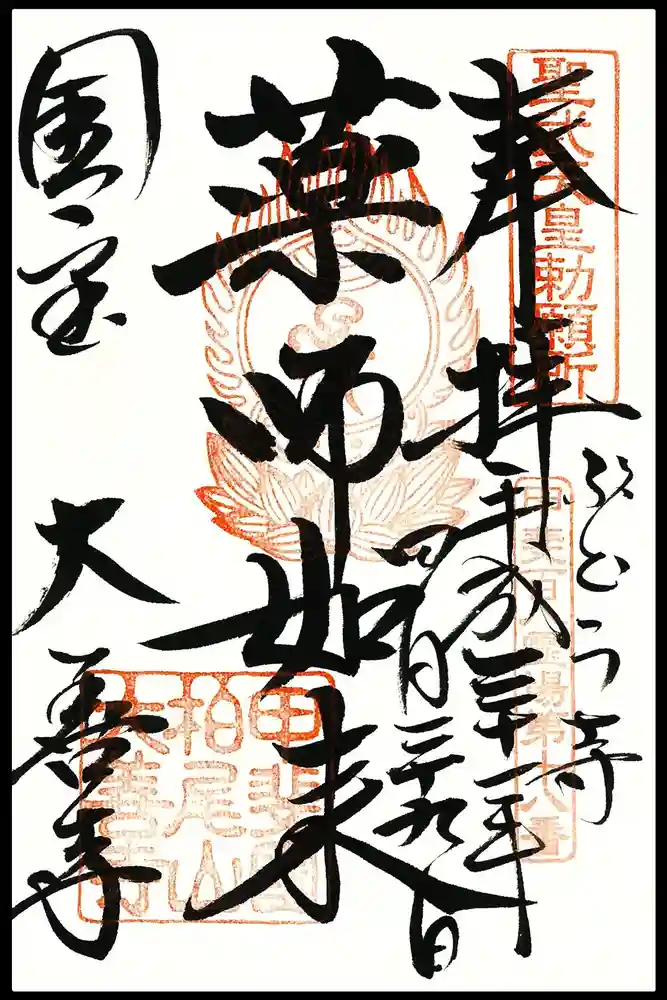 聖武天皇勅願所
ぶどう寺
甲斐百八霊場第十八番
奉拝
平成三十一年
四月二十九日
薬師如来
国宝
大善寺
甲斐國
柏尾山
大善寺